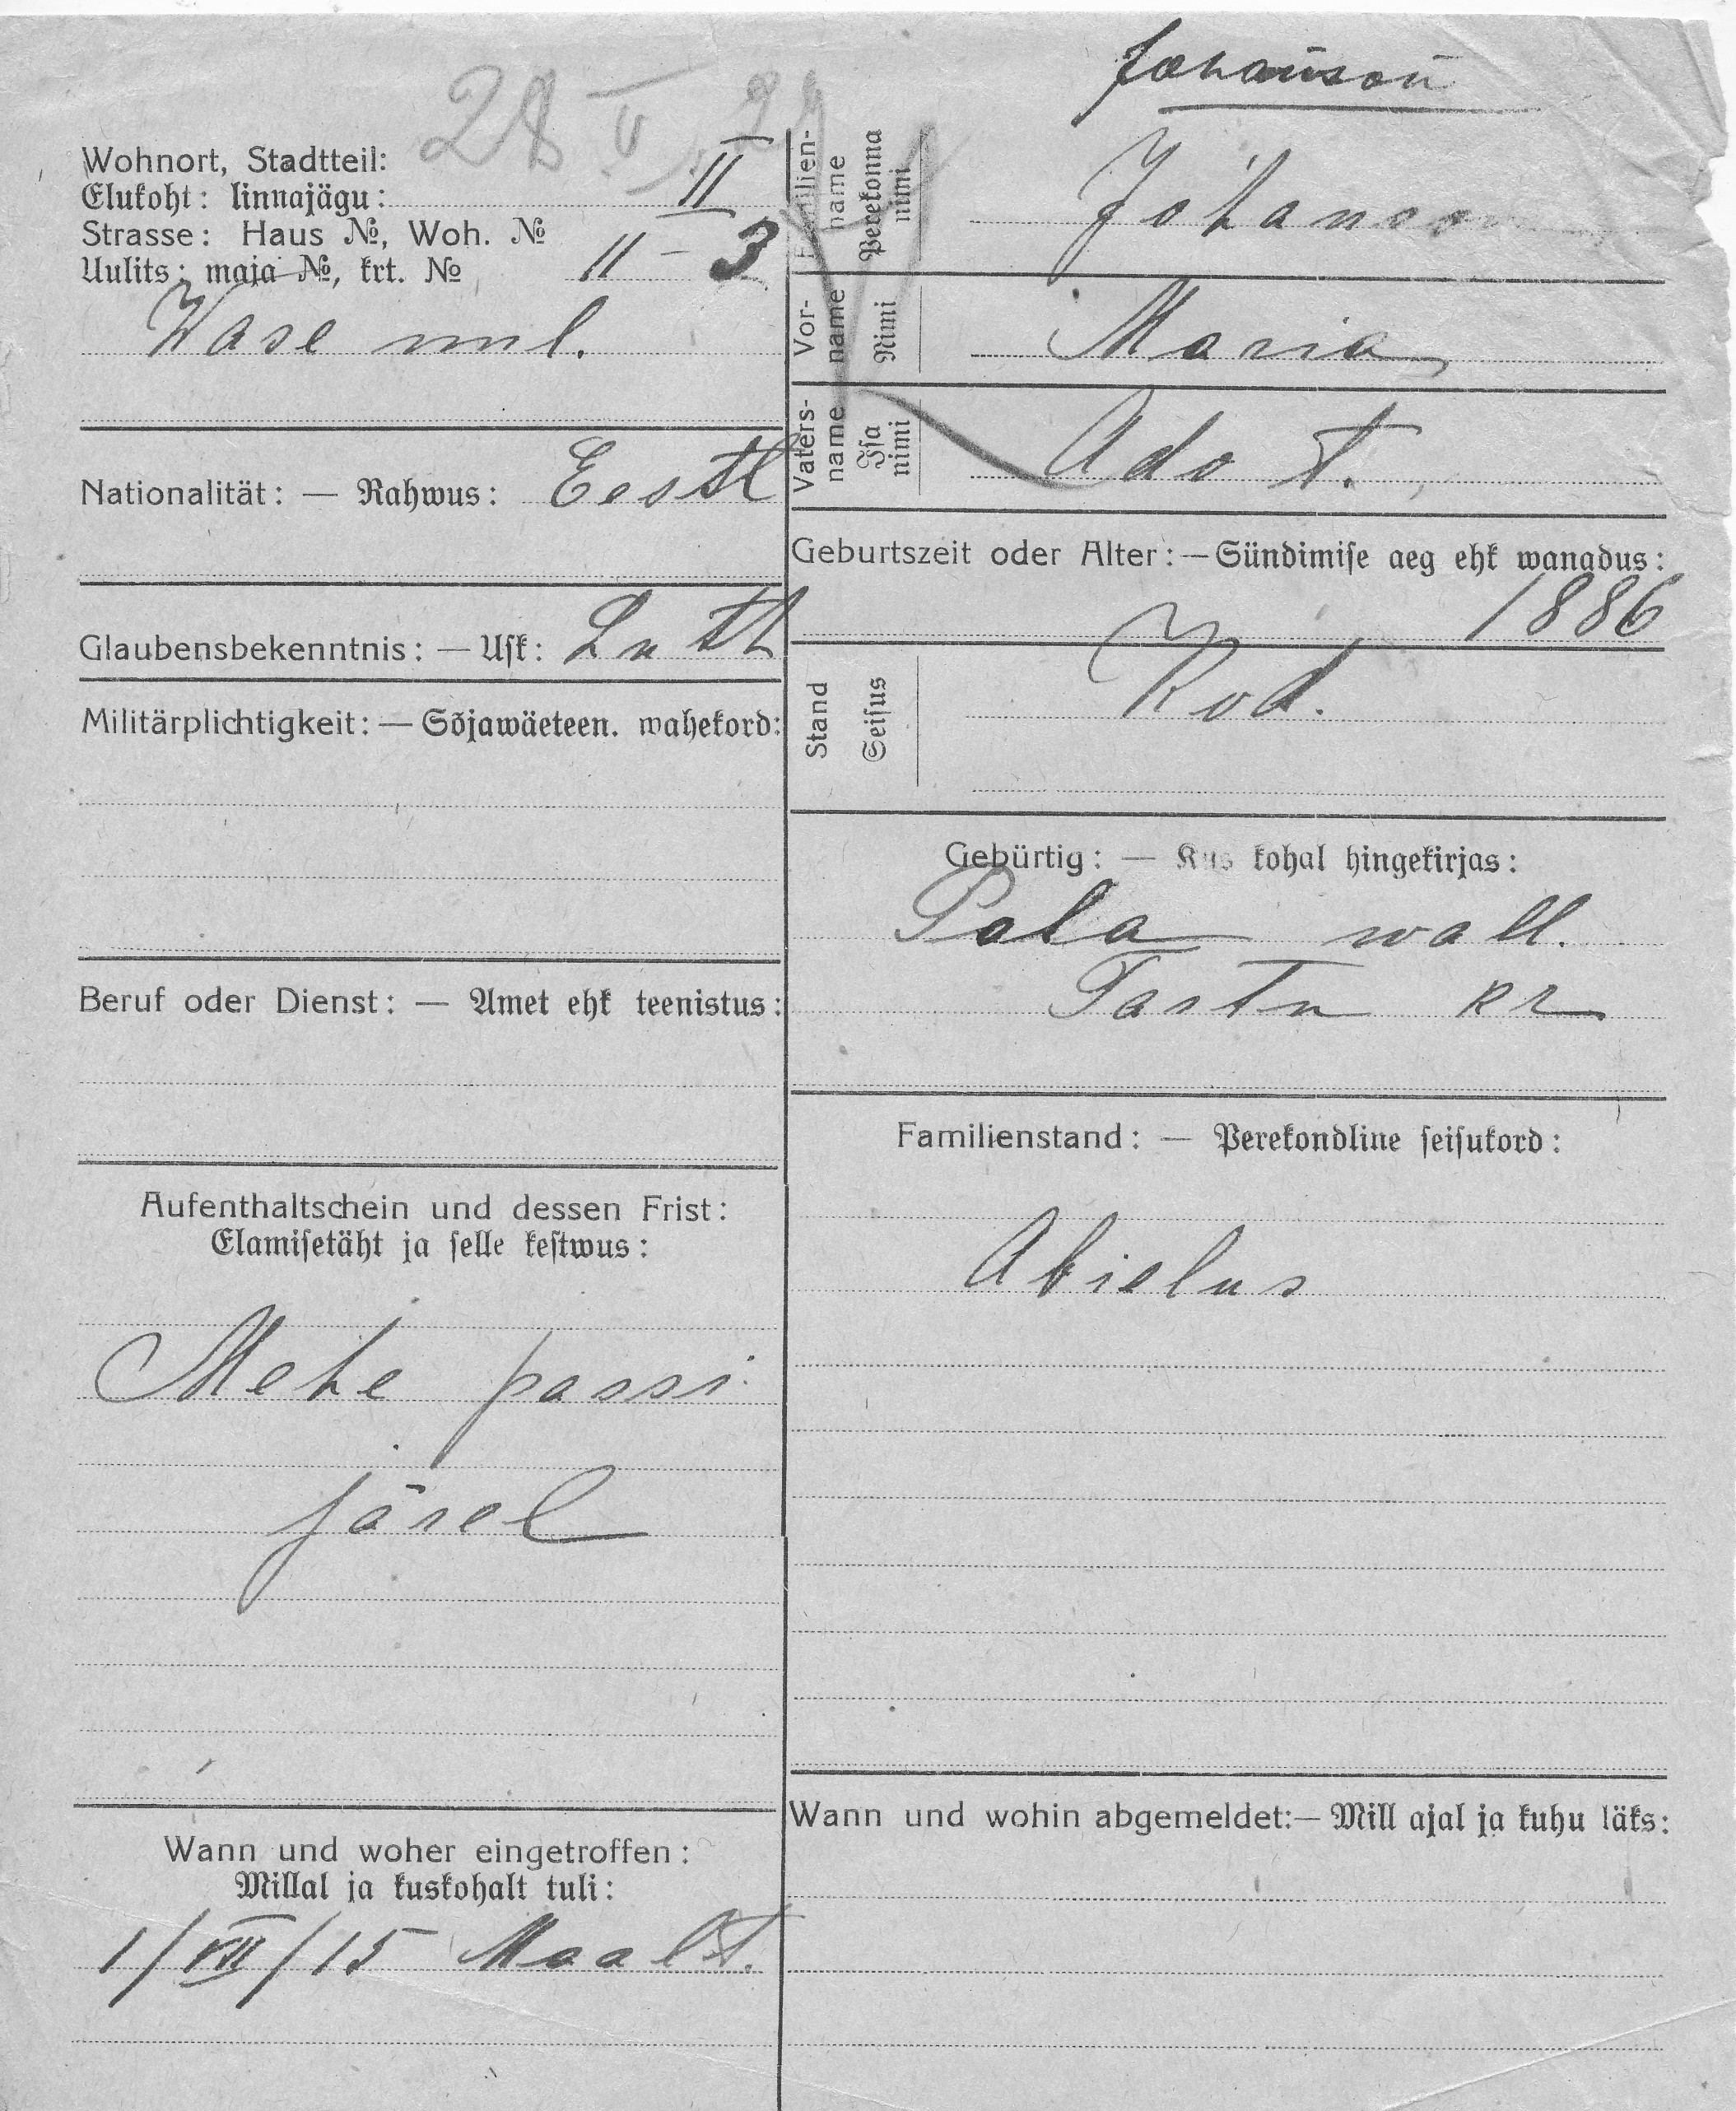 Johanson
28 V
Wohnort, Stadtteil:
Elukoht: linnajägu: II
Strasse: Haus №, Woh. №
Uulits: maja №, krt. № 11 – 3
Wase uul.
Nationalität: — Rahwus: Eestl
Glaubensbekenntnis: — Usk: Lutl
Militärplichtigkeit: — Sõjawäeteen. wahekord:
Beruf oder Dienst: — Amet ehk teenistus:
Aufenthaltschein und dessen Frist:
Elamisetäht ja selle kestwus:
Mehe passi
järel
Wann und woher eingetroffen:
Millal ja kuskohalt tuli:
1/VII/15 Maalt.
Familien-
name
Perekonna
nimi
Johanson
Vor-
name
Nimi
Maria
Vaters-
name
Isa
nimi
Ado t.
Geburtszeit oder Alter: — Sündimise aeg ehk wanadus:
1886
Stand
Seisus
Kod.
Gebürtig: — Kus kohal hingekirjas:
Pala wall.
Tartu kr
Familienstand: — Perekondline seisukord:
Abielus
Wann und wohin abgemeldet: — Mill ajal ja kuhu läks: